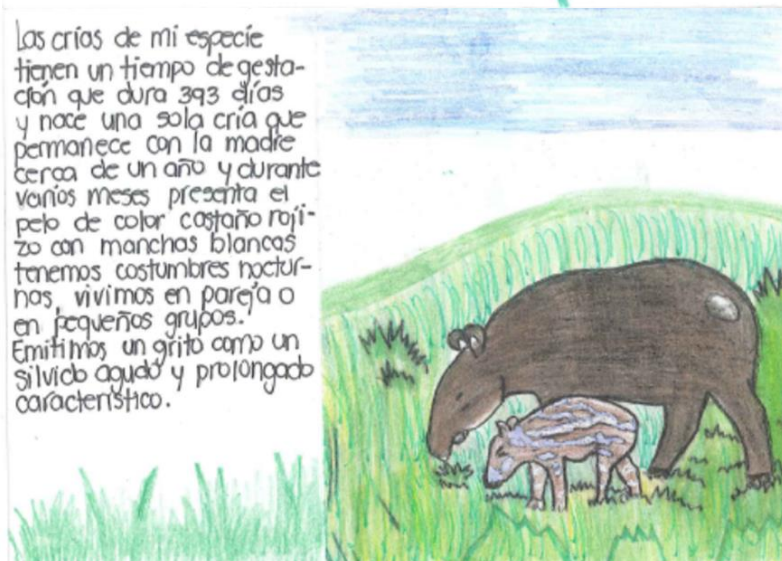 Las crías de mi especie
tienen un tiempo de gesta-
ción que dura 393 días
y nace una sola cría que
permanece con la madre
cerca de un año y durante
varios meses presenta el
pelo de color castaño roji-
zo con manchas blancas
tenemos costumbres noctur-
nas, vivimos en pareja o
en pequeños grupos.
Emitimos un grito como un
silvido agudo y prolongado
característico.